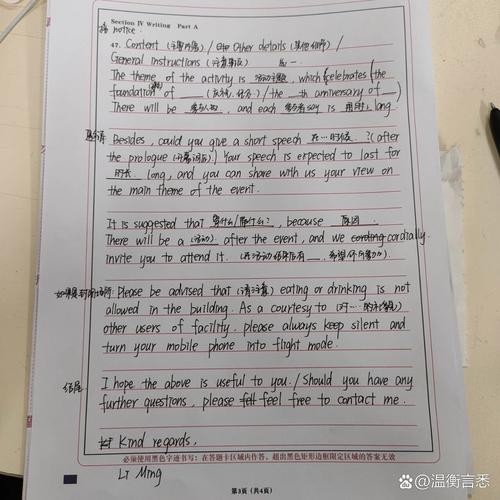 Section IV Writing Part A
notice.
47. Content (主要内容) / Other details (其他细节) /
General instructions (注意事项)
The theme of the activity is 活动主题, which celebrates (the
foundation of ___ / the ___th anniversary of ___)
There will be ___, and each ___ is ___ long.
Besides, could you give a short speech ___? (after
the prologue) Your speech is expected to last for
时长 long, and you can share with us your view on
the main theme of the event.
It is suggested that 穿什么/带什么?, because 原因.
There will be a (活动) after the event, and we cording cordially
invite you to attend it. (在活动结束后有___, 希望你所努力).
Please be advised that (请注意) eating or drinking is not
allowed in the building. As a courtesy to (对…的礼貌)
other users of facility, please always keep silent and
turn your mobile phone into flight mode.
结尾: I hope the above is useful to you. / Should you have any
further questions, please felt feel free to contact me.
Kind regards,
必须使用黑色字迹书写:在答题卡区域内作答,超出黑色矩形边框限定区域的答案无效
Li Ming
第3页(共4页)
@温衡言悉